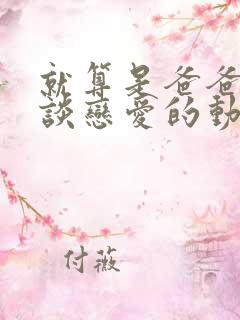 就算是爸爸
談戀愛的動
付薇